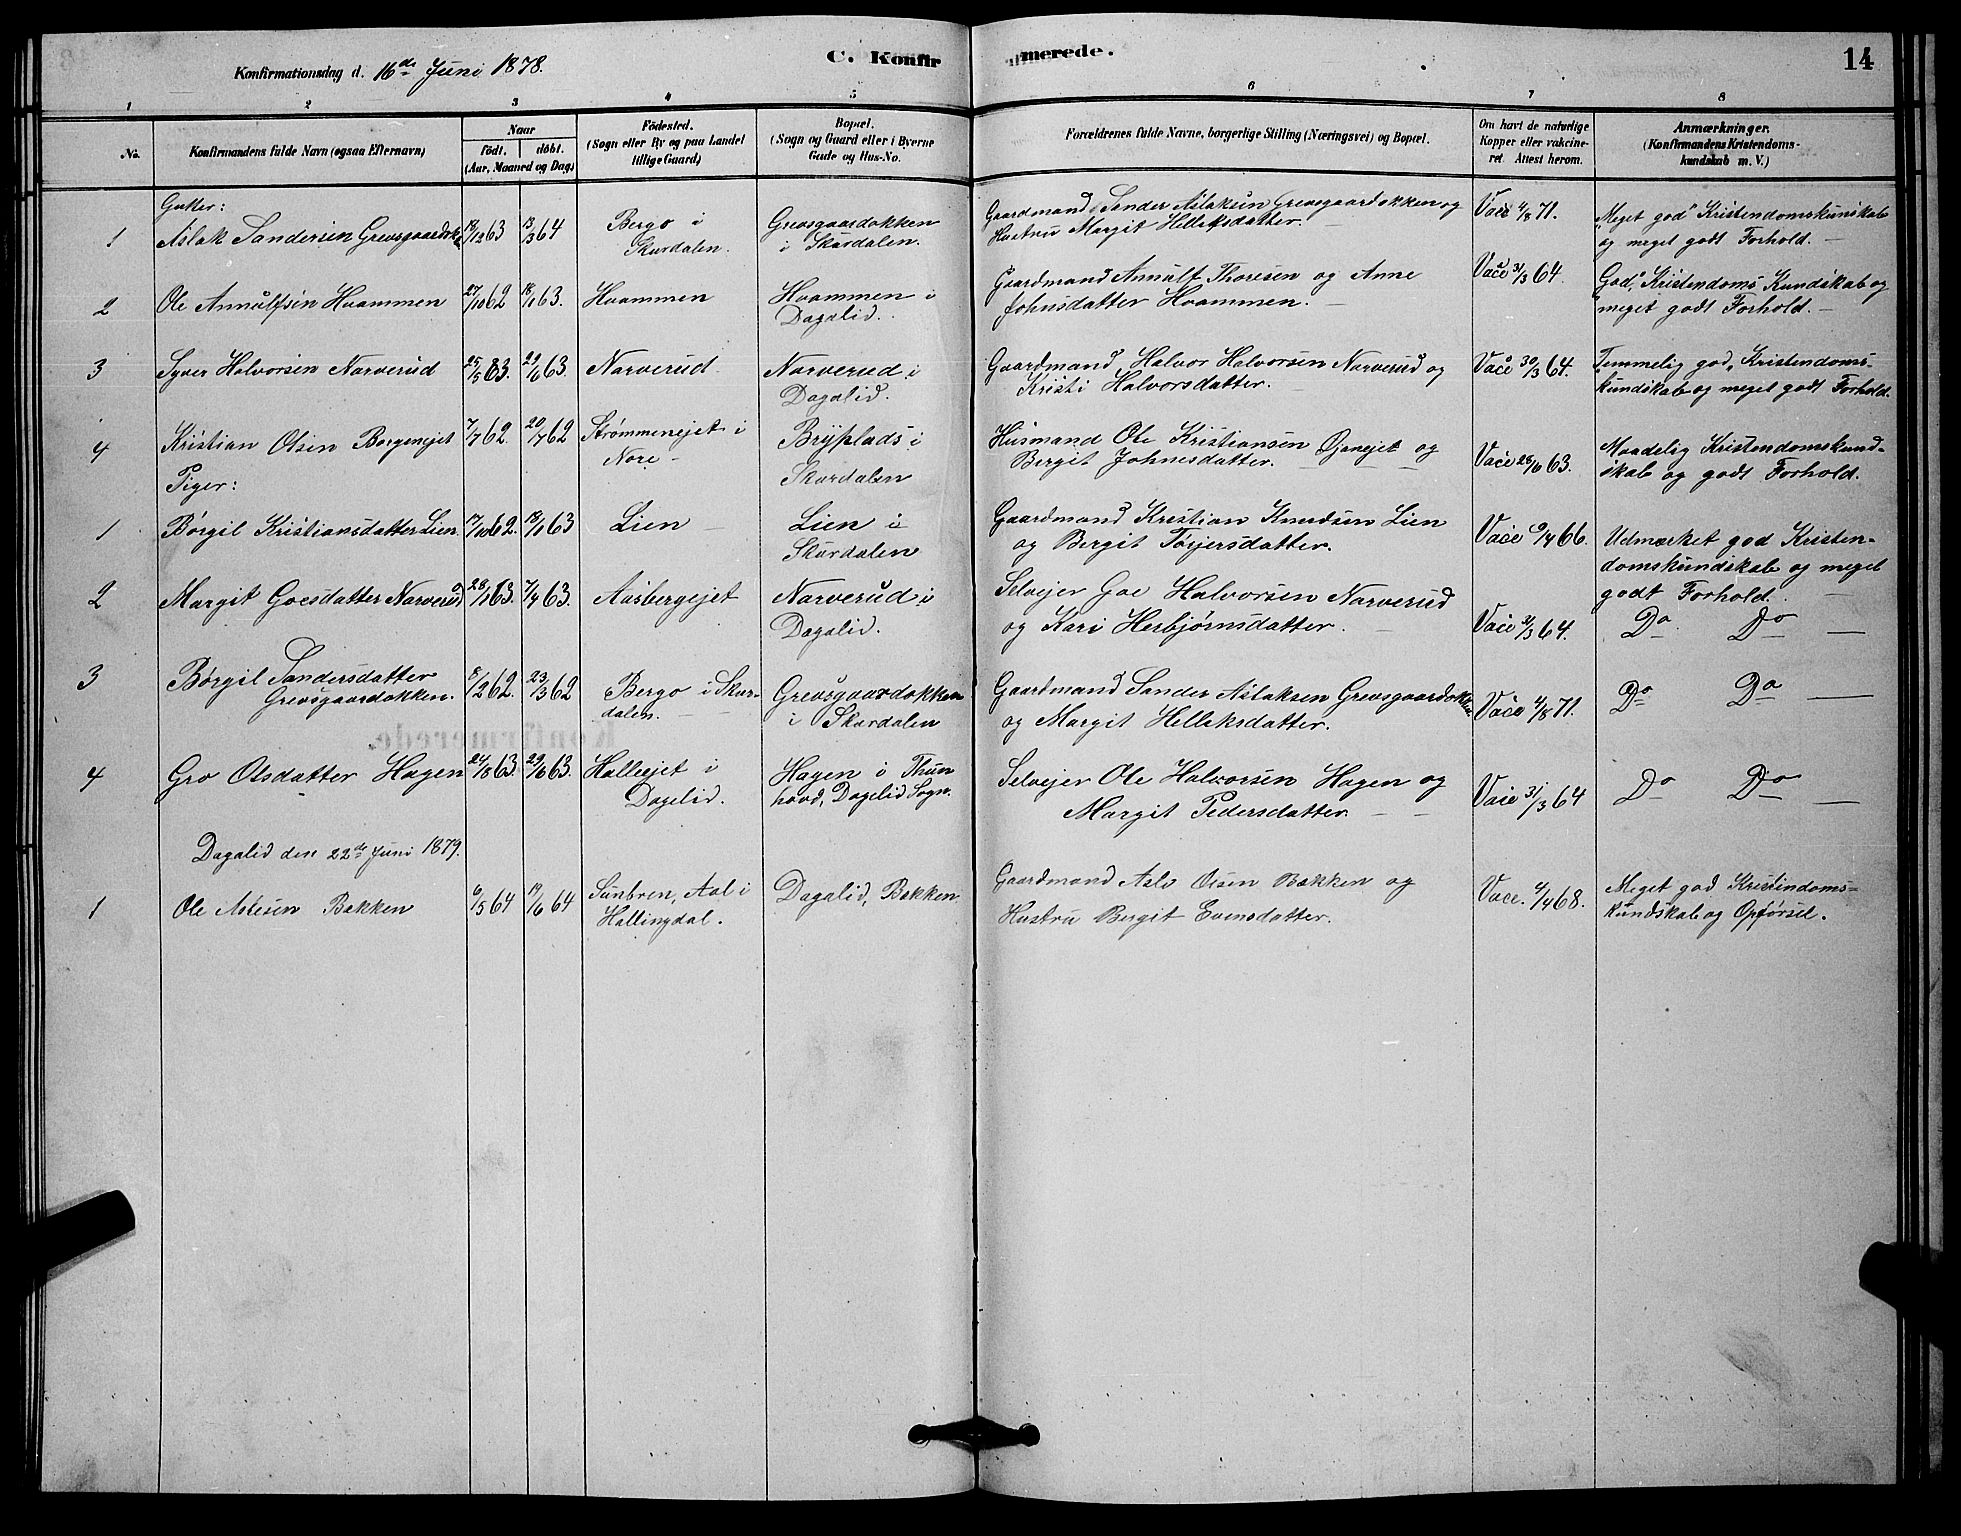 Konfirmationsdag d. 16de Juni 1878.
C. Konfirmerede.
14
1 2 3 4 5 6 7 8
No.
Konfirmandens fulde Navn (ogsaa Efternavn)
Naar
født. døbt.
(Aar, Maaned og Dag)
Födested.
(Sogn eller By og paa Landet
tillige Gaard)
Bopæl.
(Sogn og Gaard eller i Byerne
Gade og Hus-No.
Forældrenes fulde Navne, borgerlige Stilling (Næringsvei) og Bopæl.
Om havt de naturlige
Kopper eller vakcine-
ret. Attest herom.
Anmærkninger.
(Konfirmandens Kristendoms-
kundskab m. V.)
Gutter:
1 Aslak Sandersen Grevsgaardokk 63 13/3 64
Bergo i
Skurdalen.
Grevsgaardokken
i Skurdalen.
Gaardmand Sander Aslaksen Grevsgaardokken og
Hustru Margit Helleksdatter.
Vacc 4/8 71.
Meget god Kristendomskunskab
og meget godt Forhold.
2 Ole Annulfsen Hvammen 27/10 62 18/1 63.
Hvammen
Hvammen i
Dagalid.
Gaardmand Annulf Thoresen og Anne
Johnsdatter Hvammen.
Vacc 31/3 64.
God Kristendoms Kundskab og
meget godt Forhold.
3 Syver Halvorsen Narverud 25/5 63. 29/6 63.
Narverud
Narverud i
Dagalid.
Gaardmand Halvor Halvorsen Narverud og
Kristi Halvorsdatter.
Vacc 30/3 64.
Temmelig god Kristendoms-
kundskab og meget godt Forhold.
4 Kristian Olsen Borgenejet 7/7 62. 20/7 62
Strømmenejet i
Nore
Bryplads i
Skurdalen
Husmand Ole Kristiansen Øynejet og
Bergit Johnesdatter.
Vacc 28/6 63.
Maadelig Kristendomskund-
skab og godt Forhold.
Piger:
1 Børgil Kristiansdatter Lien 17/10 62. 18/1 63
Lien
Lien i
Skurdalen
Gaardmand Kristian Knudsen Lien
og Bergit Torjersdatter.
Vacc 9/4 66.
Udmærket god Kristen-
domskundskab og meget
godt Forhold.
2 Margit Goesdatter Narverud 28/1 63. 7/4 63.
Aasbergejet
Narverud i
Dagalid.
Selvejer Goe Halvorsen Narverud
og Kari Herbjørnsdatter.
Vacc 31/3 64.
Do Do
3 Børgil Sandersdatter
Grevsgaardokken. 8/2 62. 23/3 62
Bergo i Skur-
dalen.
Grevsgaardokken
i Skurdalen
Gaardmand Sander Aslaksen Grevsgaardokken
og Margit Helleksdatter.
Vacc 4/8 71.
Do Do
4 Gro Olsdatter Hagen 24/8 63. 29/6 63.
Halleejet i
Dagelid.
Hagen i Thun
hovd, Dagelid Sogn.
Selvejer Ole Halvorsen Hagen og
Margit Pedersdatter
Vacc 31/3 64
Do Do
Dagalid den 22de Juni 1879.
1 Ole Aslesen Bakken 6/5 64 19/6 64
Sunbren, Aal i
Hallingdal.
Dagalid, Bakken
Gaardmand Aslo Olsen Bakken og
Hustru Bergit Evensdatter.
Vacc. 4/4 68.
Meget god Kristendoms-
kundskab og Opførsel.